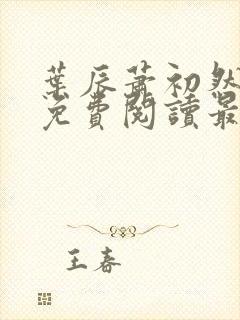 葉辰蕭初然
免費閱讀最
王春